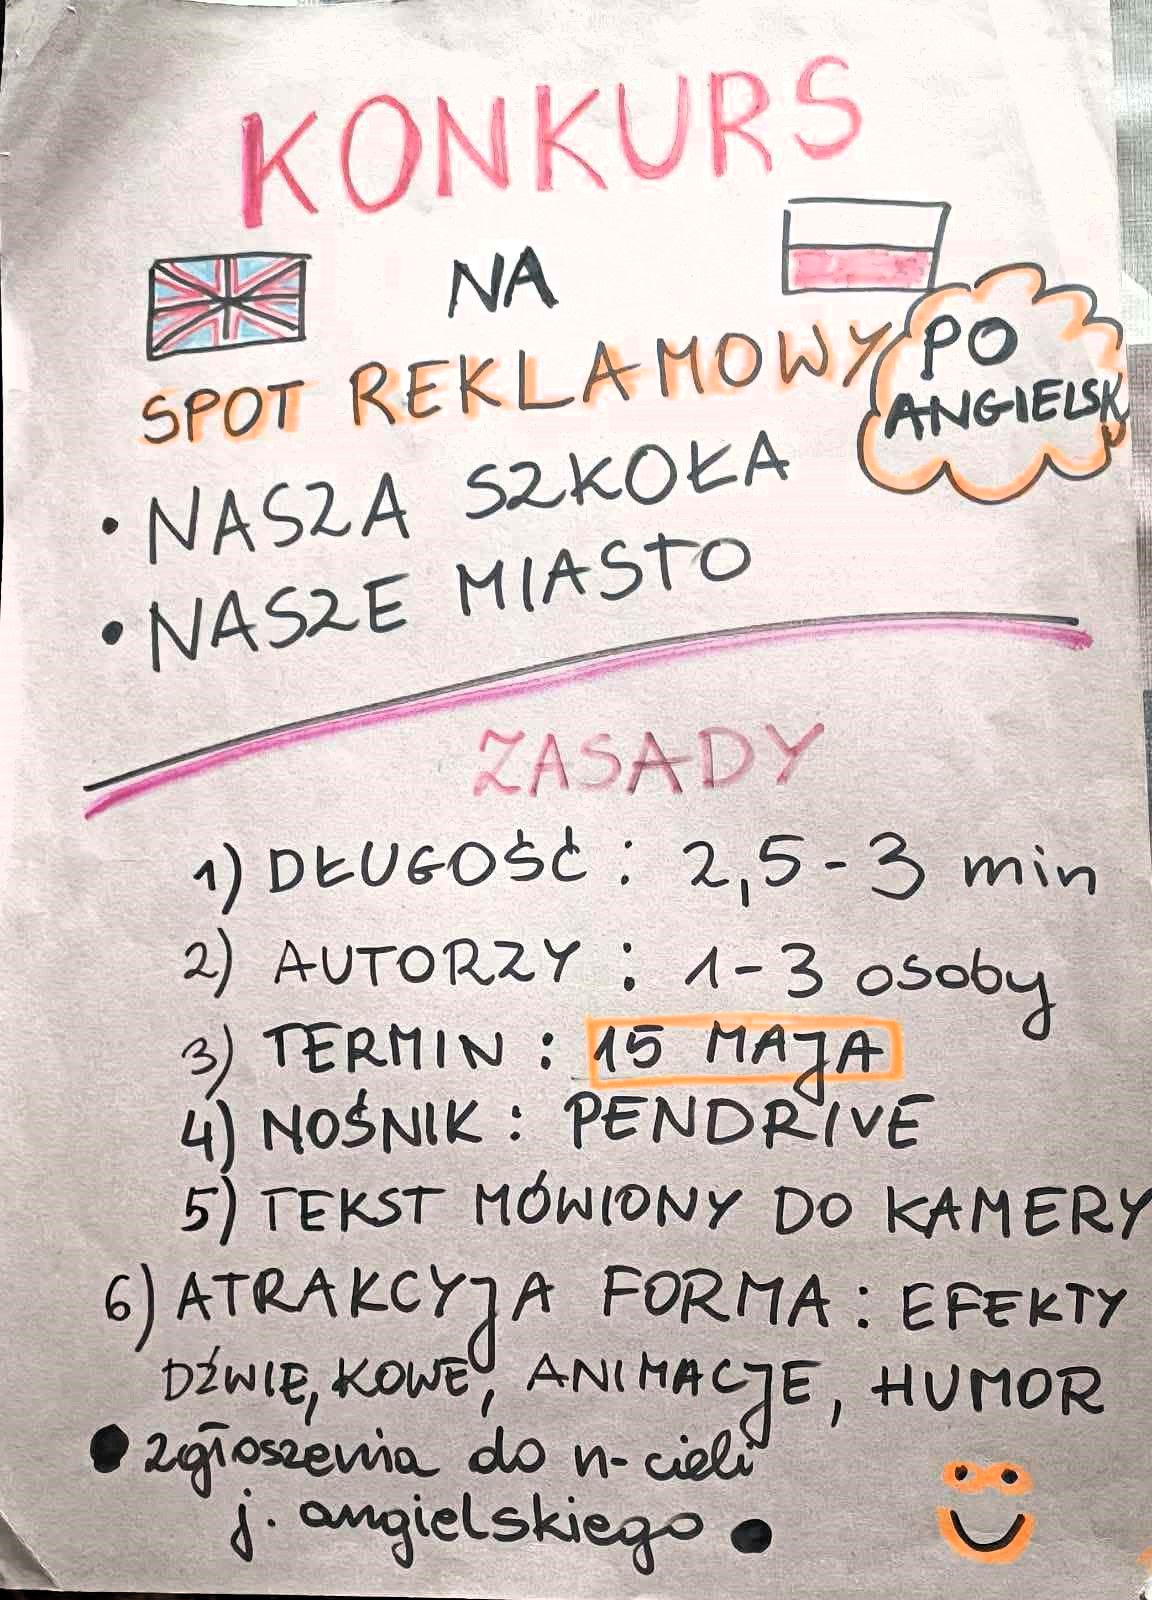 KONKURS
NA
SPOT REKLAMOWY
PO
ANGIELSKU
• NASZA SZKOŁA
• NASZE MIASTO
ZASADY
1) DŁUGOŚĆ : 2,5 - 3 min
2) AUTORZY : 1 - 3 osoby
3) TERMIN : 15 MAJA
4) NOŚNIK : PENDRIVE
5) TEKST MÓWIONY DO KAMERY
6) ATRAKCYJA FORMA : EFEKTY
DŹWIĘKOWE, ANIMACJE, HUMOR
• zgłoszenia do n-cieli
j. angielskiego •